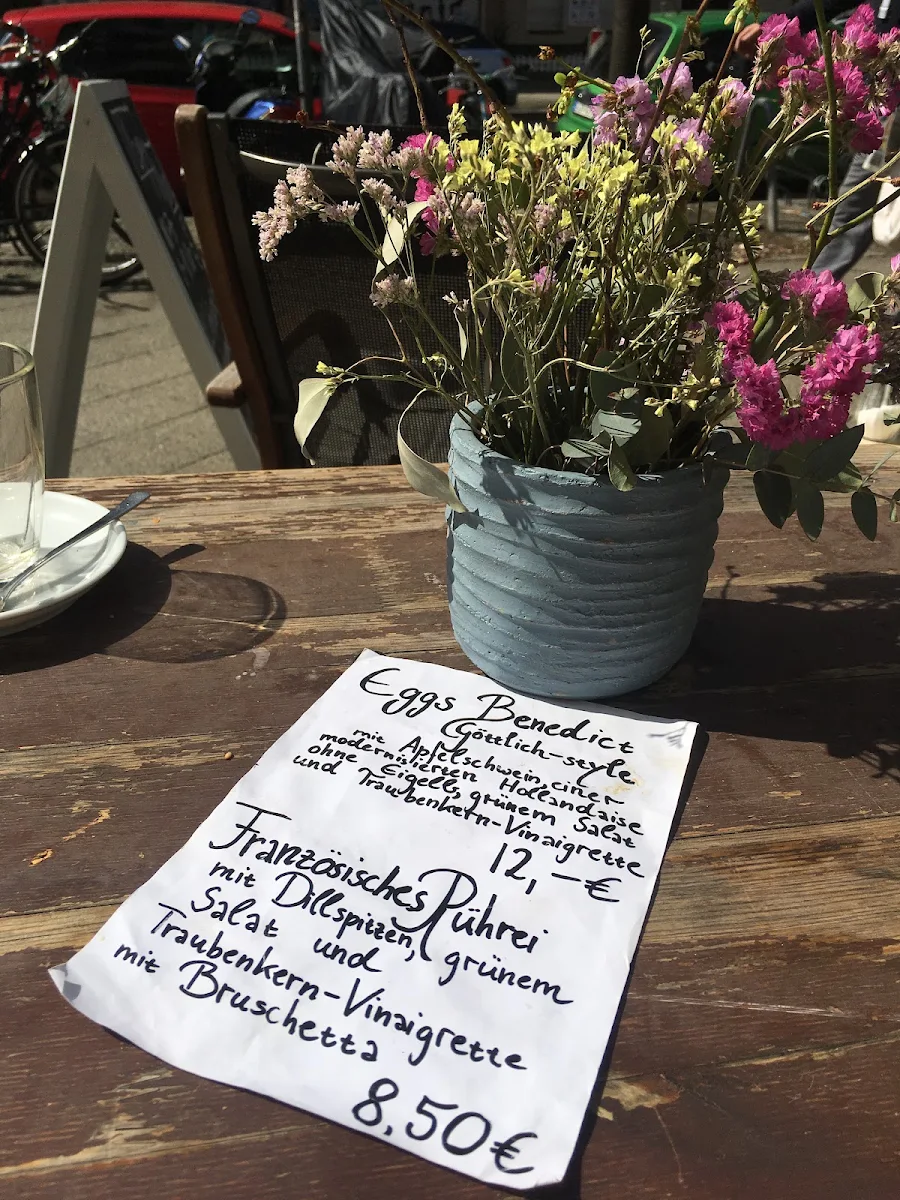 Eggs Benedict
Göttlich-style
mit Apfelschwein, einer
modernisierten Hollandaise
ohne Eigelb, grünem Salat
und Traubenkern-Vinaigrette
12,-€
Französisches Rührei
mit Dillspitzen, grünem
Salat und
Traubenkern-Vinaigrette
mit Bruschetta
8,50€